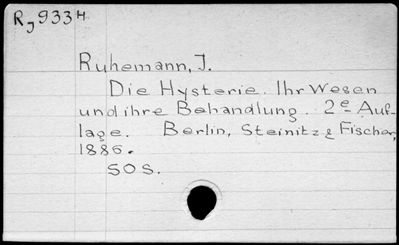 R,933H
Ruhemann, J.
Die Hysterie. Ihr Wesen
und ihre Behandlung. 2e Auf-
lage. Berlin, Steinitz & Fischer,
1886.
SOS.